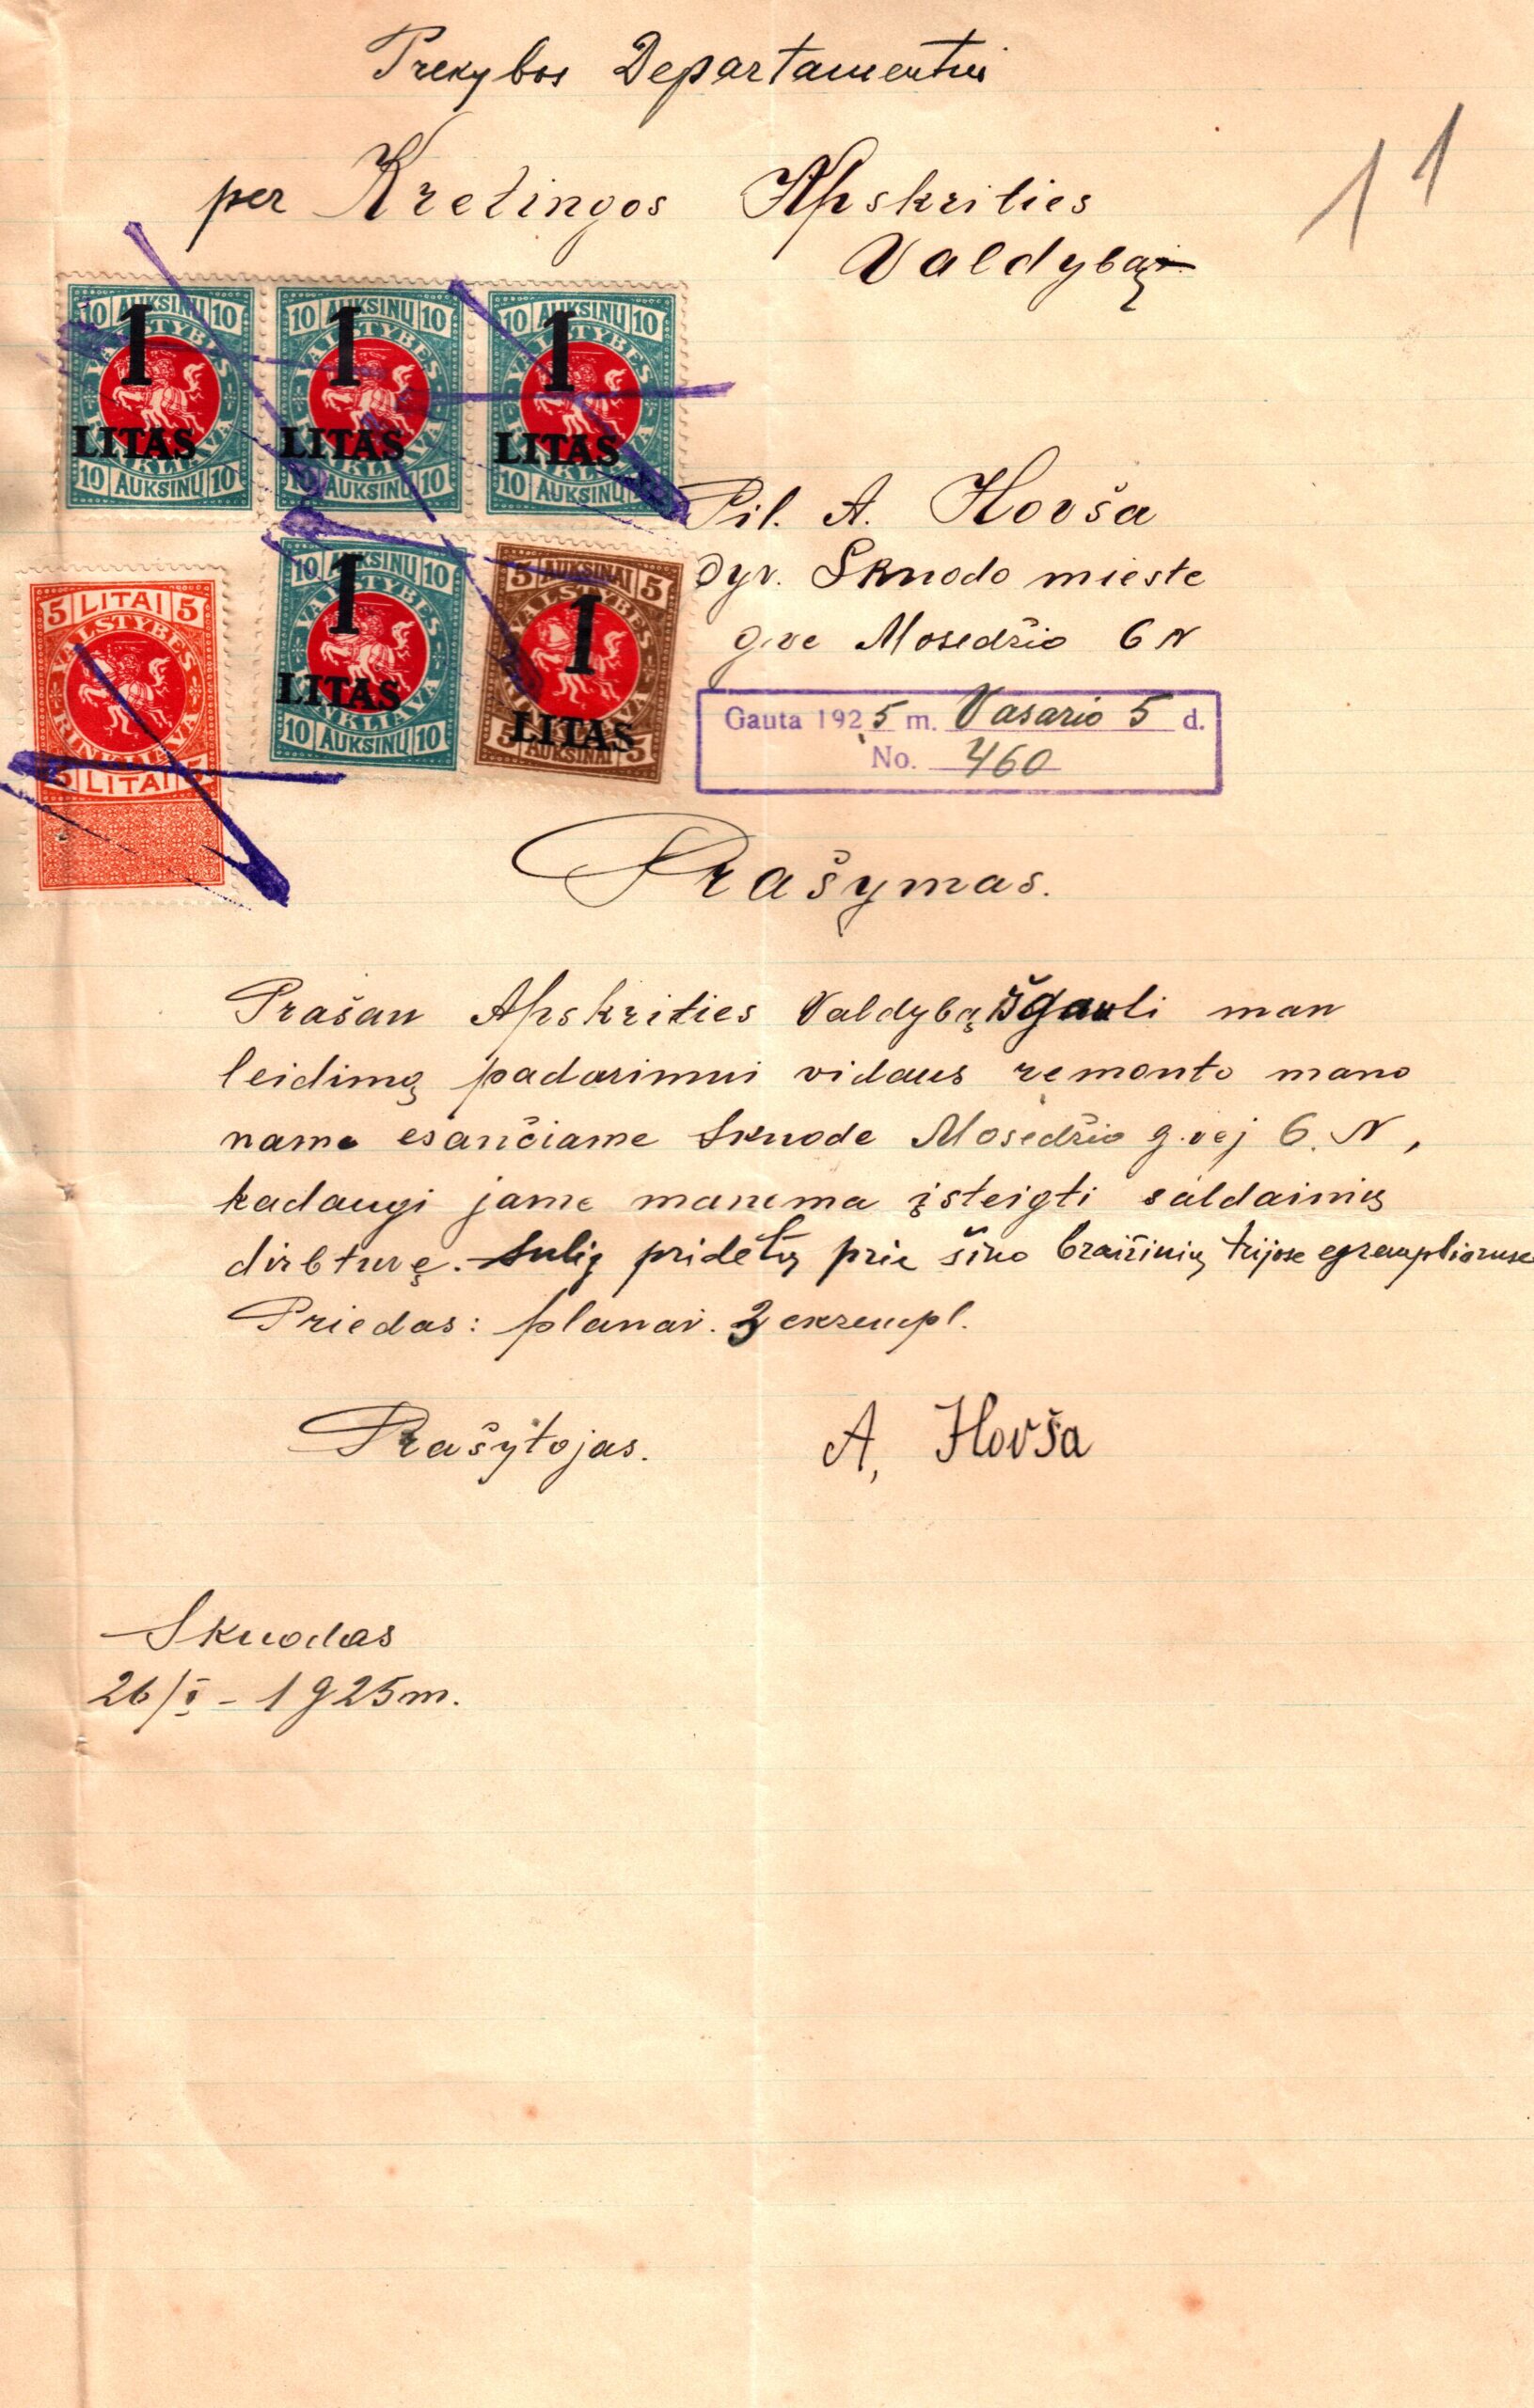 Prekybos Departamentui
per Kretingos Apskrities
Valdybą
11
10 AUKSINŲ 10
VALSTYBĖS
RINKLIAVA
1
LITAS
10 AUKSINŲ 10
10 AUKSINŲ 10
VALSTYBĖS
RINKLIAVA
1
LITAS
10 AUKSINŲ 10
10 AUKSINŲ 10
VALSTYBĖS
RINKLIAVA
1
LITAS
10 AUKSINŲ 10
Pil. A. Hovša
gyv. Skuodo mieste
g-ve Mosedžio 6 N
5 LITAI 5
VALSTYBĖS
RINKLIAVA
5 LITAI 5
10 AUKSINŲ 10
VALSTYBĖS
RINKLIAVA
1
LITAS
10 AUKSINŲ 10
5 AUKSINAI 5
VALSTYBĖS
RINKLIAVA
1
LITAS
5 AUKSINAI 5
Gauta 1925 m. Vasario 5 d.
No. 460
Prašymas.
Prašau Apskrities Valdybą išgauti man
leidimą padarimui vidaus remonto mano
name esančiame Skuode Mosedžio g.vej 6. N,
kadangi jame manema įsteigti saldainių
dirbtuvę. Sulig pridėtų prie šino braižinių trijose egzemplioriuse
Priedas: planai. 3 ekzempl.
Prašytojas. A, Hovša
Skuodas
26/I - 1925 m.